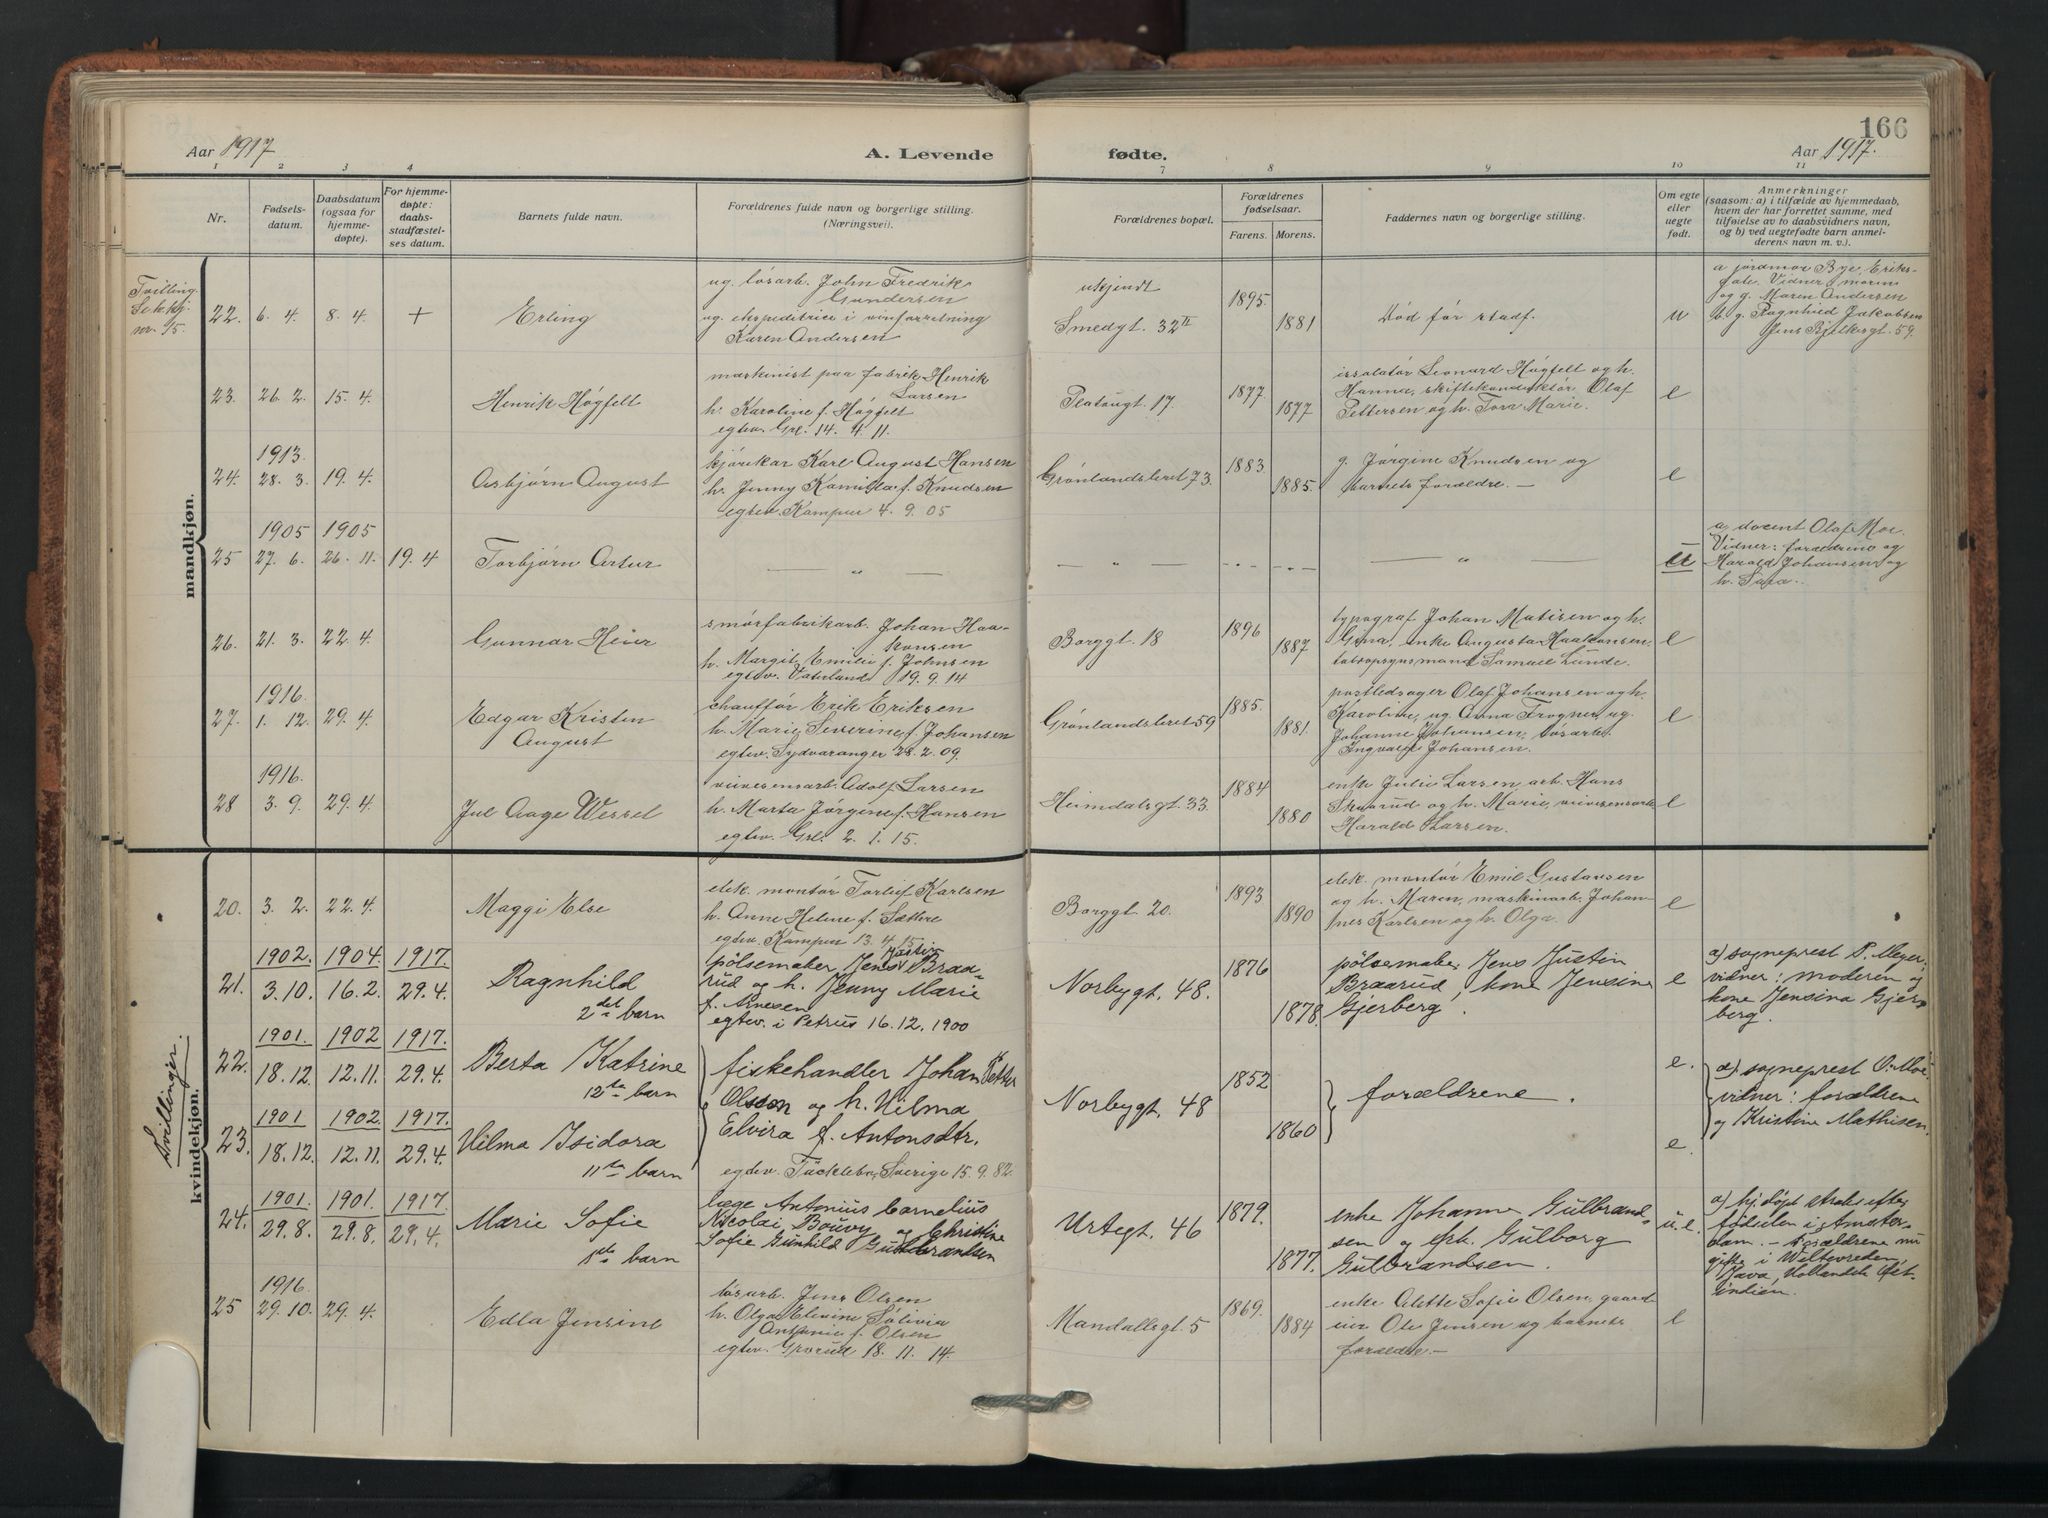 166
Aar 1917
A. Levende
fødte.
Aar 1917.
1 2 3 4 7 8 9 10 11
Nr.
Fødselsdatum.
Daabsdatum (ogsaa for hjemmedøpte).
For hjemmedøpte: daabsstadfæstelses datum.
Barnets fulde navn.
Forældrenes fulde navn og borgerlige stilling.
(Næringsvei).
Forældrenes bopæl.
Forældrenes fødselsaar.
Farens. Morens.
Faddernes navn og borgerlige stilling.
Om egte eller uegte født.
Anmerkninger
(saasom: a) i tilfælde av hjemmedaab,
hvem der har forrettet samme, med
tilføielse av to daabsvidners navn,
og b) ved uegtefødte barn anmelderens navn m. v.).
mandkjøn.
Tvilling.
nr. 15.
22. 6. 4. 8. 4. + Erling
ug. løsarb. John Fredrik
Gundersen
ug. ekspeditrice i vinforretning
Karen Andersen
ukjendt
Smedgt. 32 II
1895.
1881
Død før stadf.
u
a jordmor Bye, Eriks-
gate. Vidner moren
og g. Maren Andersen
b. g. Ragnhild Jakobsen
Jens Bjelkesgt. 59.
23. 26. 2. 15. 4. Henrik Høgfelt
maskinist paa fabrik Henrik
Larsen
h. Karoline f. Høgfelt
egtev. Grl. 14. 4. 11.
Platougt. 17.
1877.
1877
issolatør Leonard Høgfelt og h.
Hanna, skiftekonduktør Olaf
Pettersen og h. Tora Marie.
e
1913.
24. 28. 3. 19. 4. Asbjørn August
kjørekar Karl August Hansen
h. Jenny Kamilla f. Knudsen
egtev. Kampen 4. 9. 05
Grønlandsleret 73.
1883.
1885.
g. Jørgine Knudsen og
barnets forældre. —
e
1905 1905
25 27. 6. 26. 11. 19. 4 Torbjørn Artur
— " —
— " —
— " —
a, docent Olaf Moe.
Vidner: forældrene og
Harald Johansen og
h. Sara.
26. 21. 3. 22. 4. Gunnar Heier
smørfabrikarb. Johan Haa-
konsen
h. Margit Emilie f. Johnsen
egtev. Vaterland 19. 9. 14
Borggt. 18
1896
1887
typograf Johan Matisen og h.
Gina, enke Augusta Haakonsen,
Samuel Lunde.
e
1916.
27. 1. 12. 29. 4. Edgar Kristen
August
chauffør Erik Eriksen
h. Marie Severine f. Johansen
egtev. Sydvaranger 28. 2. 09.
Grønlandsleret 59
1885.
1881.
postledsager Olaf Johansen og h.
Karoline, ug. Anna Frogner, ug.
Johanne Johansen, løsarb.
Ingvald Johansen.
e
1916.
28 3. 9. 29. 4. Jul Aage Wessel
Adolf Larsen
h. Marta Jørgine f. Hansen
egtev. Grl. 2. 1. 15.
Heimdalsgt. 33.
1884
1880
enke Julie Larsen, arb. Hans
Skaarud og h. Marie,
Harald Larsen.
e
kvindekjøn.
20. 3. 2. 22. 4. Maggi Else
elek. montør Torleif Karlsen
h. Anne Helene f. Sættre
egtev. Kampen 13. 4. 15
Borggt. 20.
1893
1890
elek. montør Emil Gustavsen
og h. Maren, maskinarb. Johan-
nes Karlsen og h. Olga.
e
1902. 1904. 1917.
21. 3. 10. 16. 2. 29. 4. Ragnhild
2det barn
pølsemaker Jens Justin Braa-
rud og h. Jenny Marie
f. Arnesen
egtev. i Petrus 16. 12. 1900
Norbygt. 48.
1876
1878.
pølsemaker Jens Justin
Braarud, kone Jensine
Gjerberg.
e
a) sogneprest P. Meyer.
vidner: moderen og
kone Jensina Gjer-
berg.
Tvillinger.
1901. 1902 1917.
22. 18. 12. 12. 11. 29. 4. Berta Katrine
12te barn
fiskehandler Johan Petter
Olsson og h. Hilma
Elvira f. Antonsdtr.
egtev. Sverige 15. 9. 82.
Norbygt. 48
1852
1860
forældrene.
e.
a) sogneprest O. Moe
vidner: forældrene
og Kristine Mathisen.
1901 1902. 1917.
23. 18. 12. 12. 11. 29. 4. Hilma Isidora
11te barn
e.
1901. 1901. 1917.
24. 29. 8. 29. 8. 29. 4. Marie Sofie
1ste barn
læge Antonius Cornelius
Nicolai Bouvy og Christine
Sofie Gunhild Gulbrandsen
Urtegt. 46
1879.
1877.
enke Johanne Gulbrand-
sen og frk. Gulborg
Gulbrandsen.
u. e.
a) hj. døpt straks efter
fødselen i Amster-
dam. — Forældrene nu
gifte i Weltevreden,
Java, Hollandsk Ost-
indien.
1916.
25 29. 10. 29. 4. Edla Jensine
løsarb. Jens Olsen
h. Olga Elvine Solivia
Antonie f. Olsen
egtev. Grorud 18. 11. 14.
Mandallsgt. 5
1869.
1884
enke Alette Sofie Olsen, gaard-
eier Ole Jensen og barnets
forældre. —
e